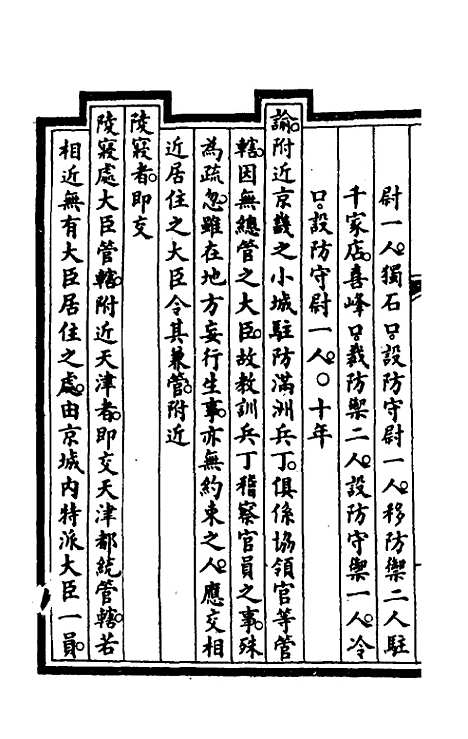 尉一人。獨石口。設防守尉一人。移防禦二人駐
千家店。喜峰口。裁防禦二人。設防守禦一人。冷
口。設防守尉一人。○十年
諭。附近京畿之小城駐防滿洲兵丁。俱係協領官等管
轄。因無總管之大臣。故教訓兵丁稽察官員之事。殊
為疏忽。雖在地方妄行生事。亦無約束之人。應交相
近居住之大臣令其兼管。附近
陵寢者。即交
陵寢處大臣管轄。附近天津者。即交天津都統管轄。若
相近無有大臣居住之處。由京城內特派大臣一員。